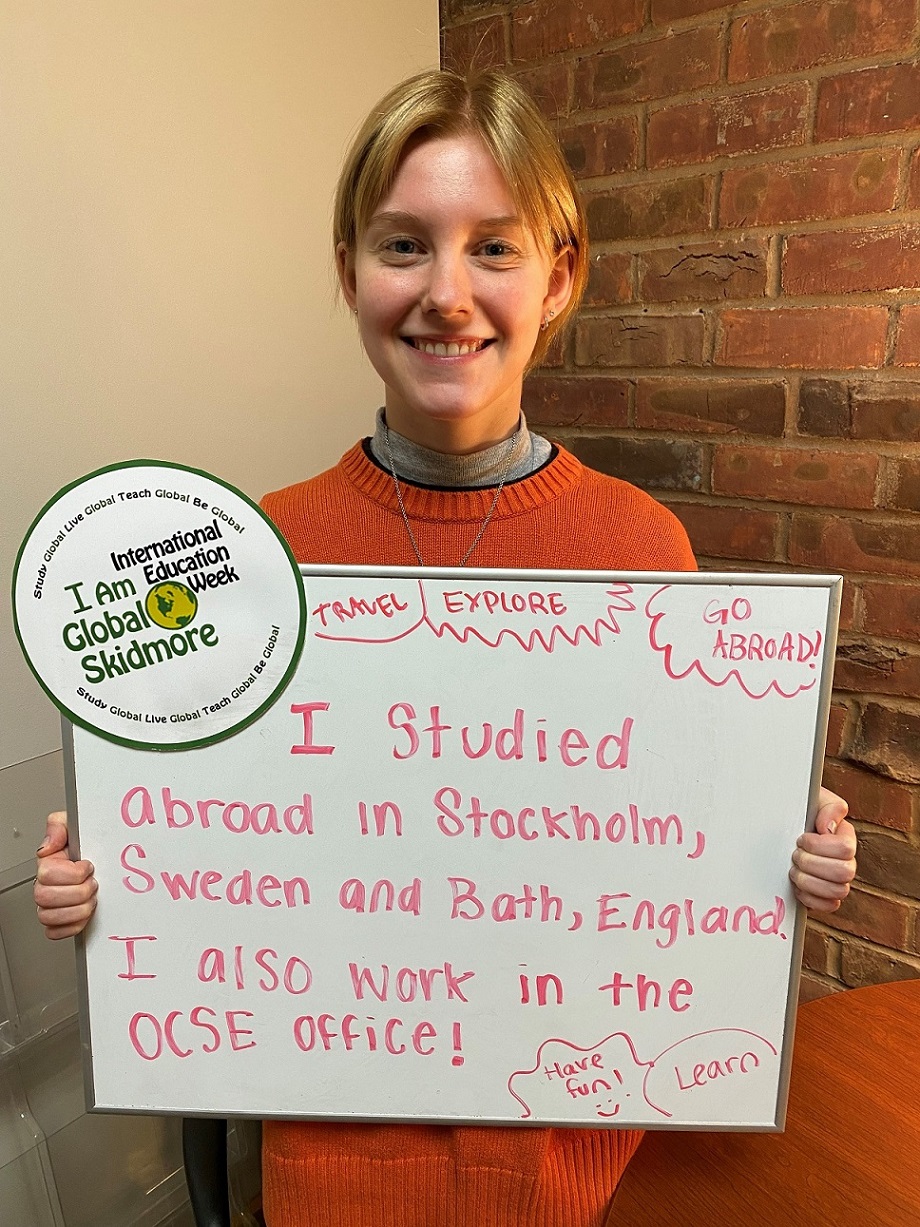 Study Global Live Global Teach Global Be Global
International
Education
Week
I Am
Global
Skidmore
Study Global Live Global Teach Global Be Global
TRAVEL
EXPLORE
GO
ABROAD!
I Studied
abroad in Stockholm,
Sweden and Bath, England!
I also work in the
OCSE Office!
Have
fun!
Learn